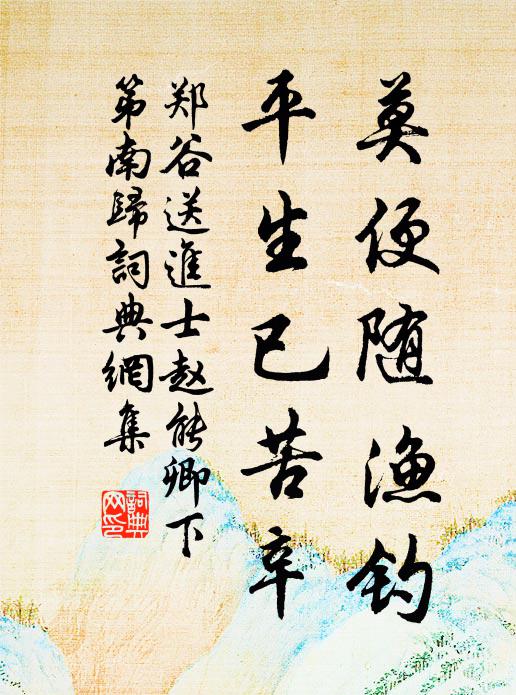 莫便随渔钓
平生已苦辛
郑谷送進士赵能卿下
第南歸詞典網集
詞典
网印